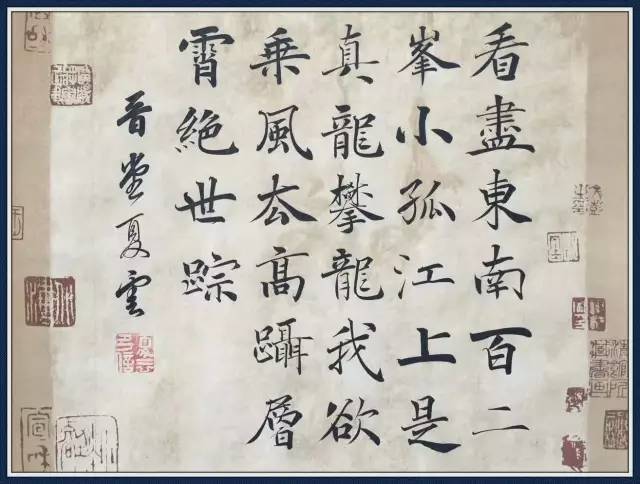 看盡東南百二
峯小孤江上是
真龍攀龍我欲
乘風去高躡層
霄絶世踪
晋堂夏雲